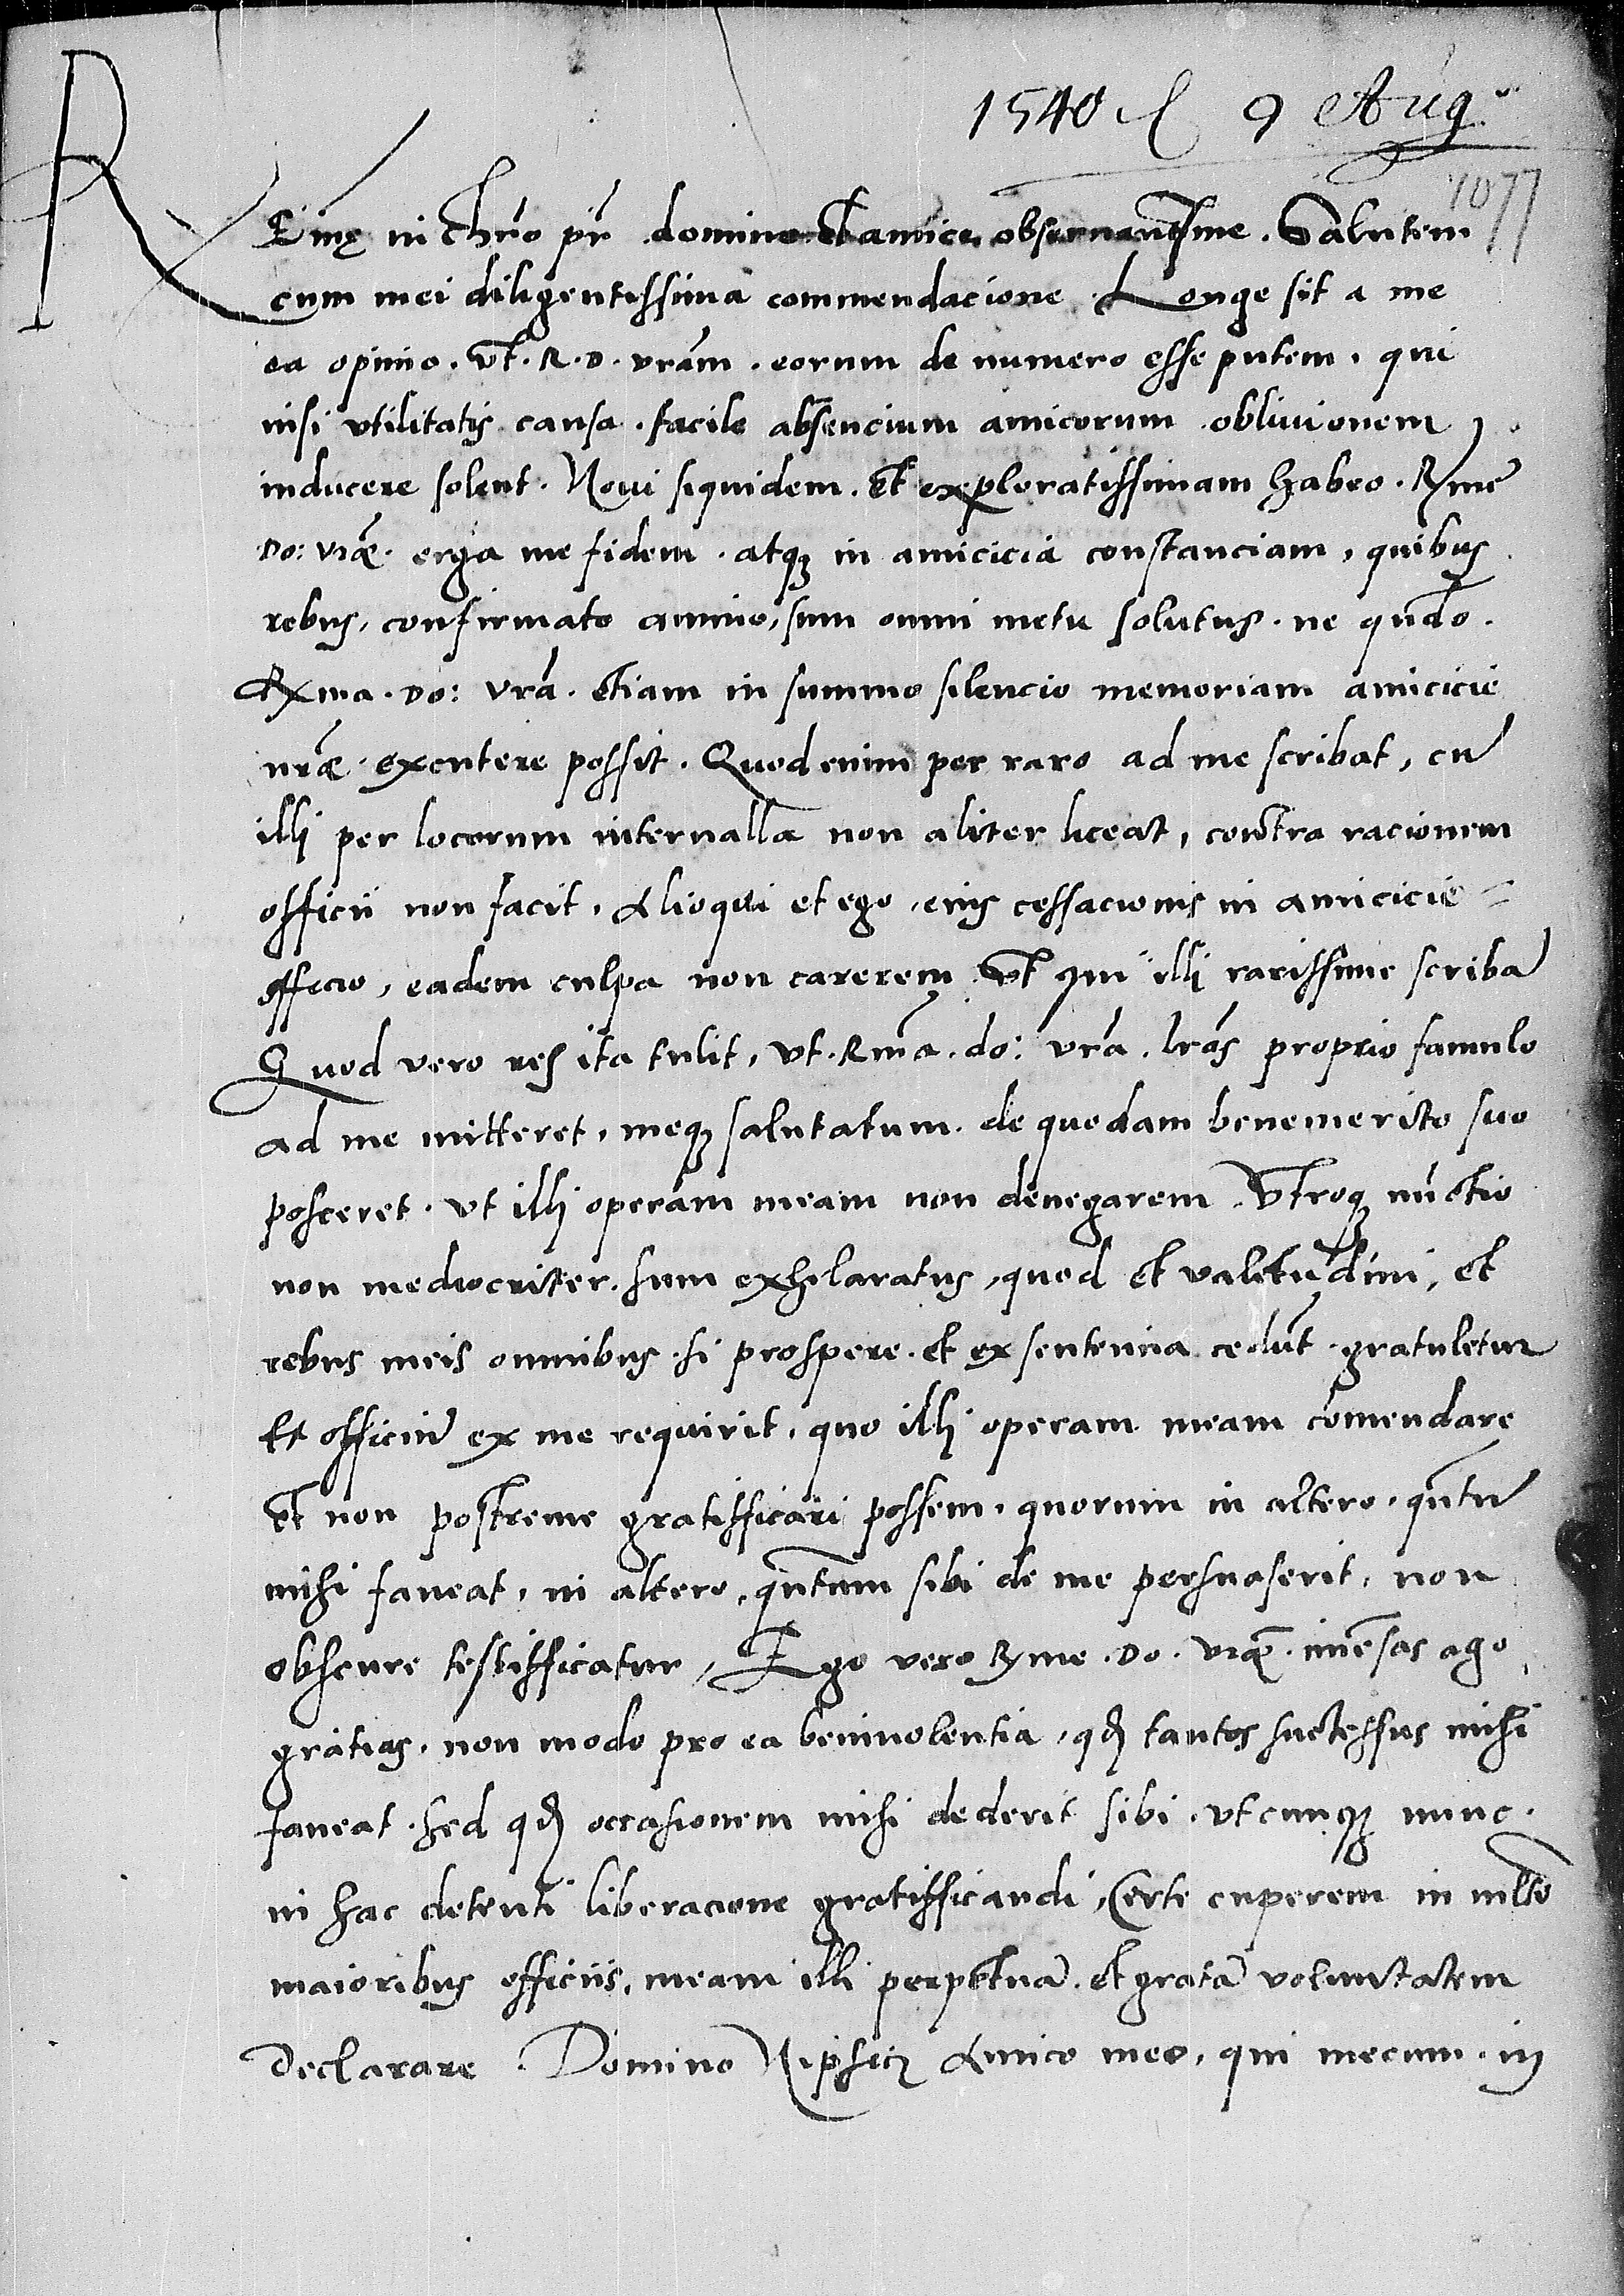 1540 d 9 Aug
1077
REmę in chro pr domine et amice observantisme. Salutem
cum mei diligentissima commendacione. Longe sit a me
ea opinio. vt. R. D. vram. eorum de numero esse putem. qui
nisi vtilitatis causa. facile absencium amicorum oblivionem
inducere solent. Novi siquidem. et exploratissimam habeo. Rme
Do: vrae. erga me fidem. atq3 in amicicia constanciam, quibus
rebus, confirmato animo, sum omni metu solutus. ne qundo.
Rma. Do: vra. etiam in summo silencio memoriam amicicie
nrae excutere possit. Quod enim per raro ad me scribat, cu
illi per locorum intervalla non aliter liceat, contra racionem
officii non facit. Alioqui et ego eius cessacionis in amicicie
officio, eadem culpa non carerem. vt qui illi rarissime scriba
Quod vero res ita tulit, vt. Rma. do: vra. lras proprio famulo
ad me mitteret, meq3 salutatum. de quodam benemerito suo
posceret. vt illi operam meam non denegarem. Vtroq3 nuctio
non mediocriter. sum exhilaratus, quod et valetudini, et
rebus meis omnibus. si prospere. et ex sentencia cedut. gratuletur
Et officiu ex me requirit, quo illi operam meam comendare
et non postreme gratifficari possem. quorum in altero. quntu
mihi faveat, in altero, quntum sibi de me persuaserit, non
obscure testifficatur, Ego vero Rme. Do. vrae. imensas ago
gratias. non modo pro ea benivolentia, qd tantos suctessus mihi
faveat. Sed qd occasionem mihi dederit sibi. vtcunq3 nunc.
in hac detenti liberacione gratifficandi, Certe cuperem in mlto
maioribus officiis, meam illi perpetua. et grata voluntatem
declarare. Domino Nipsicz Amico meo, qui mecum in